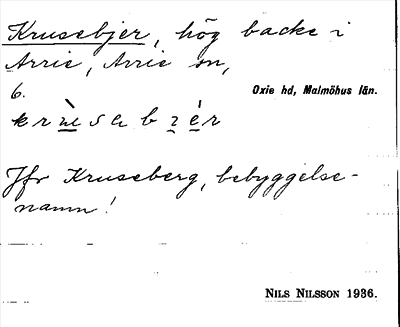 Krusebjer, hög backe i
Arrie, Arrie sn,
6.
Oxie hd, Malmöhus län.
Jfr Kruseberg, bebyggelse-
namn!
NILS NILSSON 1936.